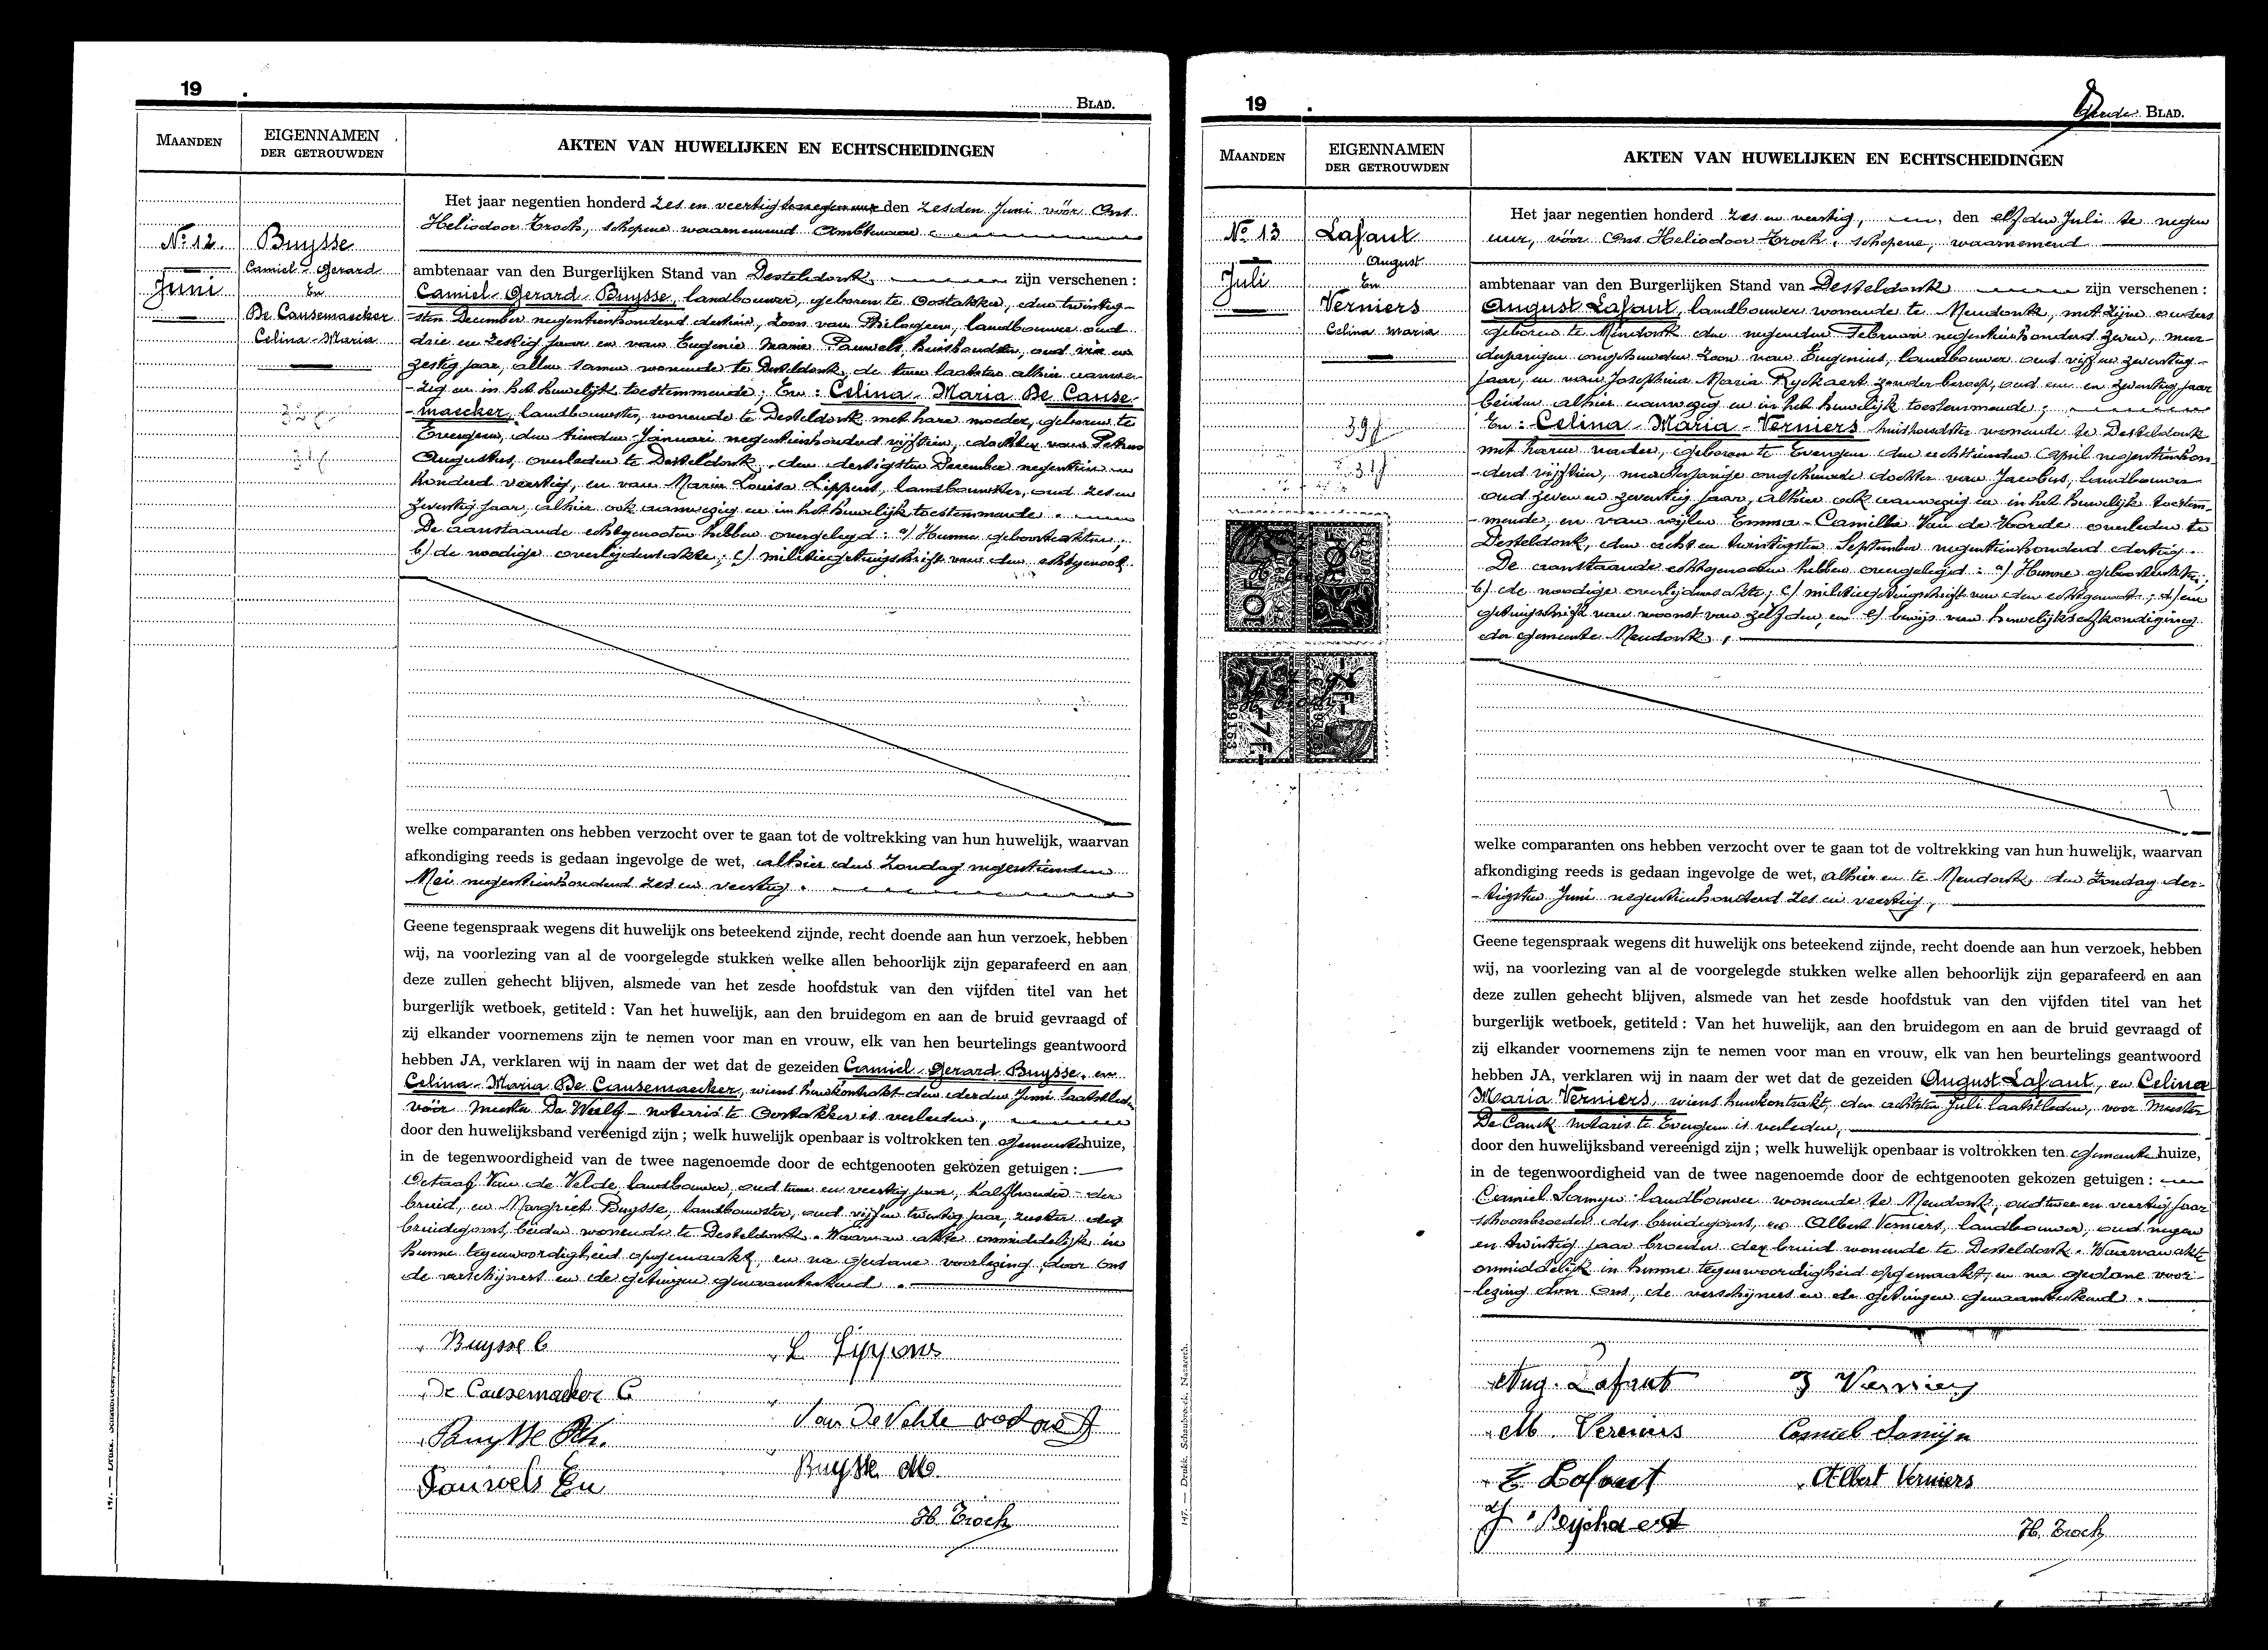 19
BLAD.
MAANDEN
EIGENNAMEN
DER GETROUWDEN
AKTEN VAN HUWELIJKEN EN ECHTSCHEIDINGEN
No 12
Juni
Buysse
Camiel-Gerard
En
De Causemaecker
Celina-Maria
32 j
31 j
Het jaar negentien honderd zes en veertig den zesden Juni vóór Ons
Heliodoor Troch, schepene waarnemend Ambtenaar
ambtenaar van den Burgerlijken Stand van Desteldonk zijn verschenen :
Camiel-Gerard-Buysse, landbouwer, geboren te Oostakker, den twintig-
-sten December negentienhonderd dertien, zoon van Philogeen, landbouwer oud
drie en zestig jaar en van Eugenie Marie Pauwels, huishoudster, oud vier en
zestig jaar, allen samen wonende te Desteldonk, de twee laatsten alhier aanwe-
-zig en in het huwelijk toestemmende; En : Celina-Maria De Cause-
-maecker, landbouwster, wonende te Desteldonk met hare moeder, geboren te
Evergem, den tienden Januari negentienhonderd vijftien, dochter van Petrus
Augustus, overleden te Desteldonk, den dertigsten December negentien
honderd veertig, en van Maria Louisa Lippens, landbouwster, oud zes en
zeventig jaar, alhier ook aanwezig en in het huwelijk toestemmende.
De aanstaande echtgenooten hebben overgelegd : a) Hunne geboorteakten;
b) de noodige overlijdensakte; c) militiegetuigschrift van den echtgenoot.
welke comparanten ons hebben verzocht over te gaan tot de voltrekking van hun huwelijk, waarvan
afkondiging reeds is gedaan ingevolge de wet, alhier den Zondag negentienden
Mei negentienhonderd zes en veertig.
Geene tegenspraak wegens dit huwelijk ons beteekend zijnde, recht doende aan hun verzoek, hebben
wij, na voorlezing van al de voorgelegde stukken welke allen behoorlijk zijn geparafeerd en aan
deze zullen gehecht blijven, alsmede van het zesde hoofdstuk van den vijfden titel van het
burgerlijk wetboek, getiteld : Van het huwelijk, aan den bruidegom en aan de bruid gevraagd of
zij elkander voornemens zijn te nemen voor man en vrouw, elk van hen beurtelings geantwoord
hebben JA, verklaren wij in naam der wet dat de gezeiden Camiel-Gerard Buysse, en
Celina-Maria De Causemaecker, wiens huwkontrakt den derden Juni laatstleden
vóór meester De Weelf notaris te Oostakker is verleden,
door den huwelijksband vereenigd zijn ; welk huwelijk openbaar is voltrokken ten gemeentehuize,
in de tegenwoordigheid van de twee nagenoemde door de echtgenooten gekozen getuigen :
Octaaf Van de Velde, landbouwer, oud twee en veertig jaar, halfbroeder der
bruid, en Margriet Buysse, landbouwster, oud vijf en twintig jaar, zuster des
bruidegoms, beiden wonende te Desteldonk. Waarvan akte onmiddelijk in
hunne tegenwoordigheid opgemaakt, en na gedane voorlezing, door ons
de verschijners en de getuigen genaamteekend.
Buysse C
L Lippens
De Causemaeker C
Van De Velde octaaf
Buysse Ph.
Buysse M.
Pauwels Eu
H. Troch
19
Derde BLAD.
MAANDEN
EIGENNAMEN
DER GETROUWDEN
AKTEN VAN HUWELIJKEN EN ECHTSCHEIDINGEN
No 13
Juli
Lafaut
August
En
Verniers
Celina Maria
39 j
31 j
10F
10F
7F.
7F.
89153
Het jaar negentien honderd zes en veertig, den elfden Juli te negen
uur, vóór Ons Heliodoor Troch, schepene, waarnemend
ambtenaar van den Burgerlijken Stand van Desteldonk zijn verschenen :
August Lafaut, landbouwer wonende te Mendonk, met zijne ouders
geboren te Mendonk den negenden Februari negentienhonderd zeven, meer-
derjarigen ongehuwden zoon van Eugenius, landbouwer oud vijf en zeventig
jaar, en van Josephina Maria Ryckaert zonder beroep, oud een en zeventig jaar
beiden alhier aanwezig en in het huwelijk toestemmende;
En : Celina-Maria-Verniers huishoudster wonende te Desteldonk
met haren vader, geboren te Evergem den achttienden April negentienhon-
-derd vijftien, meerderjarige ongehuwde dochter van Jacobus, landbouwer
oud zeven en zeventig jaar, alhier ook aanwezig en in het huwelijk toestem-
-mende, en van wijlen Emma-Camilla Van de Voorde overleden te
Desteldonk, den acht en twintigsten September negentienhonderd dertig.
De aanstaande echtgenooten hebben overgelegd : a) Hunne geboorteakten;
b) de noodige overlijdensakte; c) militiegetuigschrift van den echtgenoot; d) een
getuigschrift van woonst van zelfden, en e) bewijs van huwelijksafkondiging
der gemeente Mendonk.
welke comparanten ons hebben verzocht over te gaan tot de voltrekking van hun huwelijk, waarvan
afkondiging reeds is gedaan ingevolge de wet, alhier en te Mendonk den Zondag der-
-tigsten Juni negentienhonderd zes en veertig,
Geene tegenspraak wegens dit huwelijk ons beteekend zijnde, recht doende aan hun verzoek, hebben
wij, na voorlezing van al de voorgelegde stukken welke allen behoorlijk zijn geparafeerd en aan
deze zullen gehecht blijven, alsmede van het zesde hoofdstuk van den vijfden titel van het
burgerlijk wetboek, getiteld : Van het huwelijk, aan den bruidegom en aan de bruid gevraagd of
zij elkander voornemens zijn te nemen voor man en vrouw, elk van hen beurtelings geantwoord
hebben JA, verklaren wij in naam der wet dat de gezeiden August Lafaut, en Celina
Maria Verniers, wiens huwkontrakt, den achtsten Juli laatstleden, voor Meester
De Canck notaris te Evergem is verleden,
door den huwelijksband vereenigd zijn ; welk huwelijk openbaar is voltrokken ten gemeentehuize,
in de tegenwoordigheid van de twee nagenoemde door de echtgenooten gekozen getuigen :
Camiel Samyn landbouwer wonende te Mendonk, oud twee en veertig jaar
schoonbroeder des bruidegoms, en Albert Verniers, landbouwer, oud negen
en twintig jaar broeder der bruid wonende te Desteldonk. Waarvan akte
onmiddelijk in hunne tegenwoordigheid opgemaakt, en na gedane voor-
-lezing door Ons, de verschijners en de getuigen genaamteekend.
Aug. Lafaut
J Verniers
M. Verniers
Camiel Samijn
E Lafaut
Albert Verniers
J Reychaert
H. Troch
147. — Drukk. Schaubroeck, Nazareth.